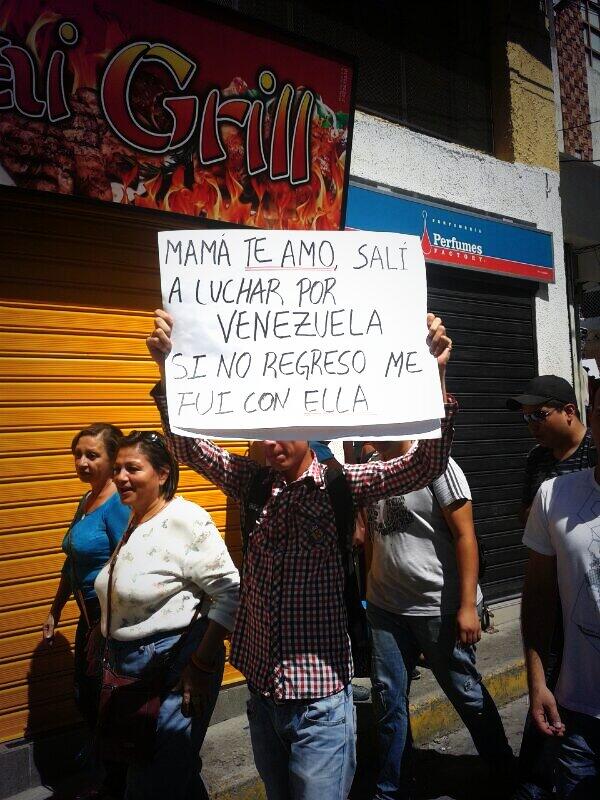 ai Grill
PERFUMERIA
Perfumes
FACTORY
MAMÁ TE AMO, SALÍ
A LUCHAR POR
VENEZUELA
SI NO REGRESO ME
FUI CON ELLA